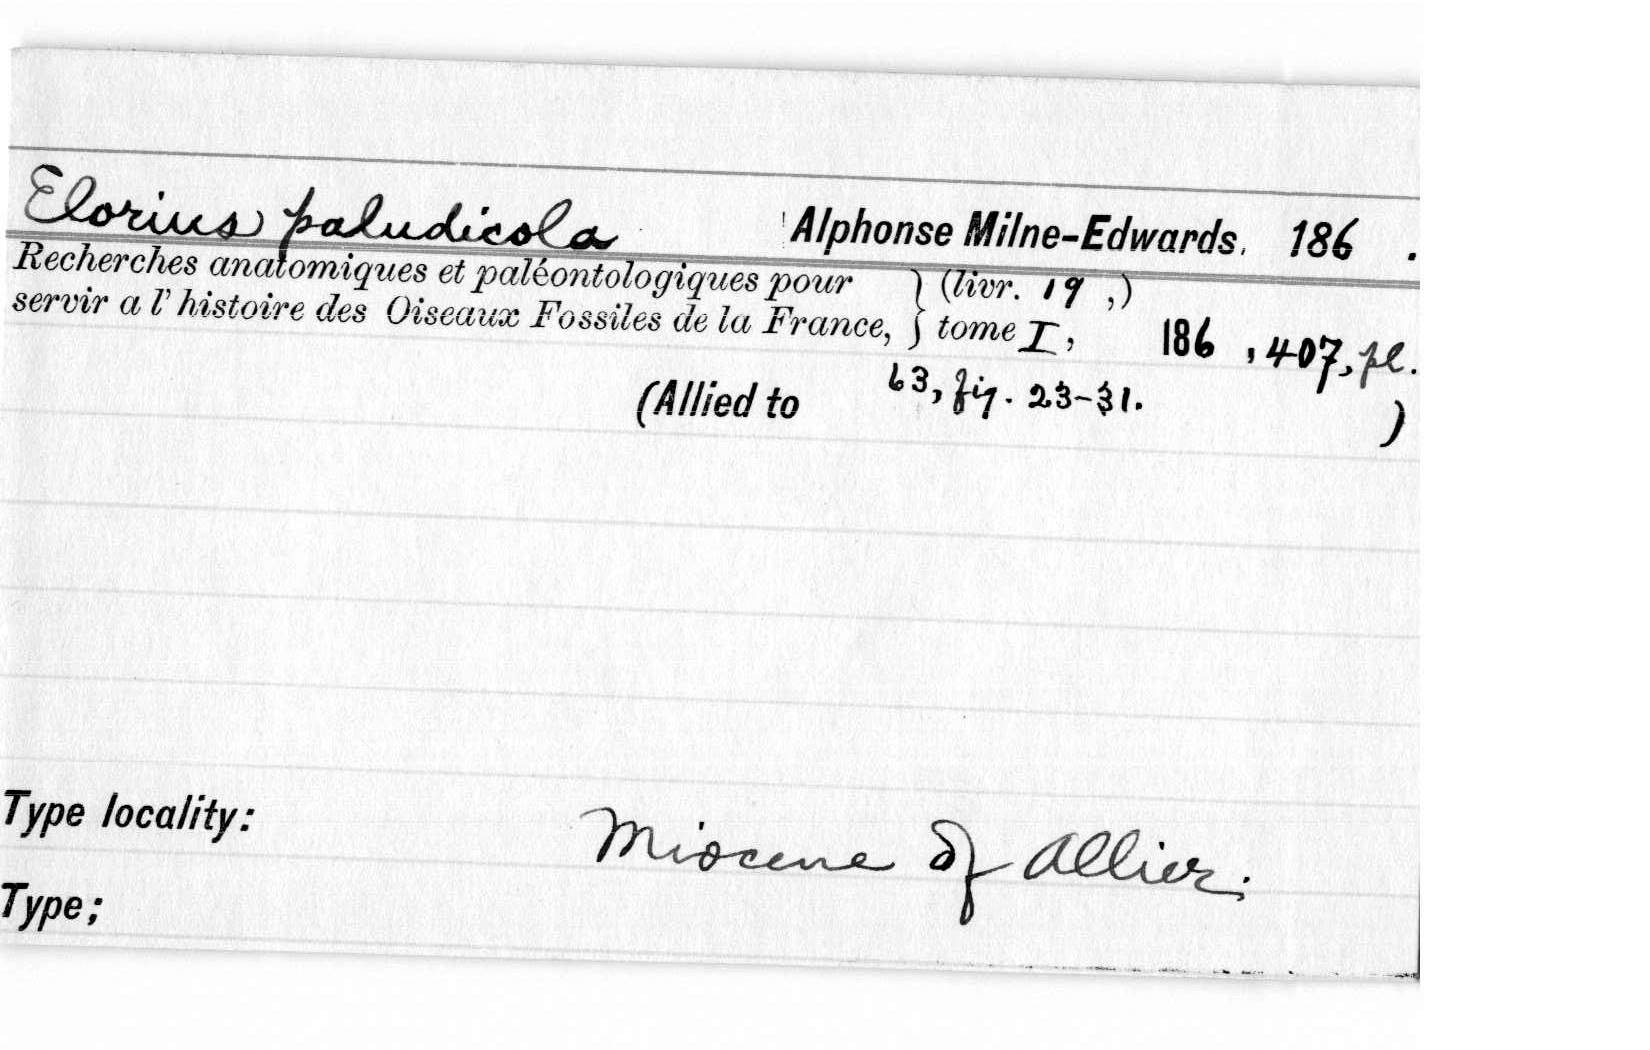 Elorius paludicola Alphonse Milne-Edwards. 186 .
Recherches anatomiques et paléontologiques pour } (livr. 19 ,)
servir a l'histoire des Oiseaux Fossiles de la France, } tome I, 186 , 407, pl.
63, fig. 23-31.
(Allied to )
Type locality: Miocene of Allier.
Type;